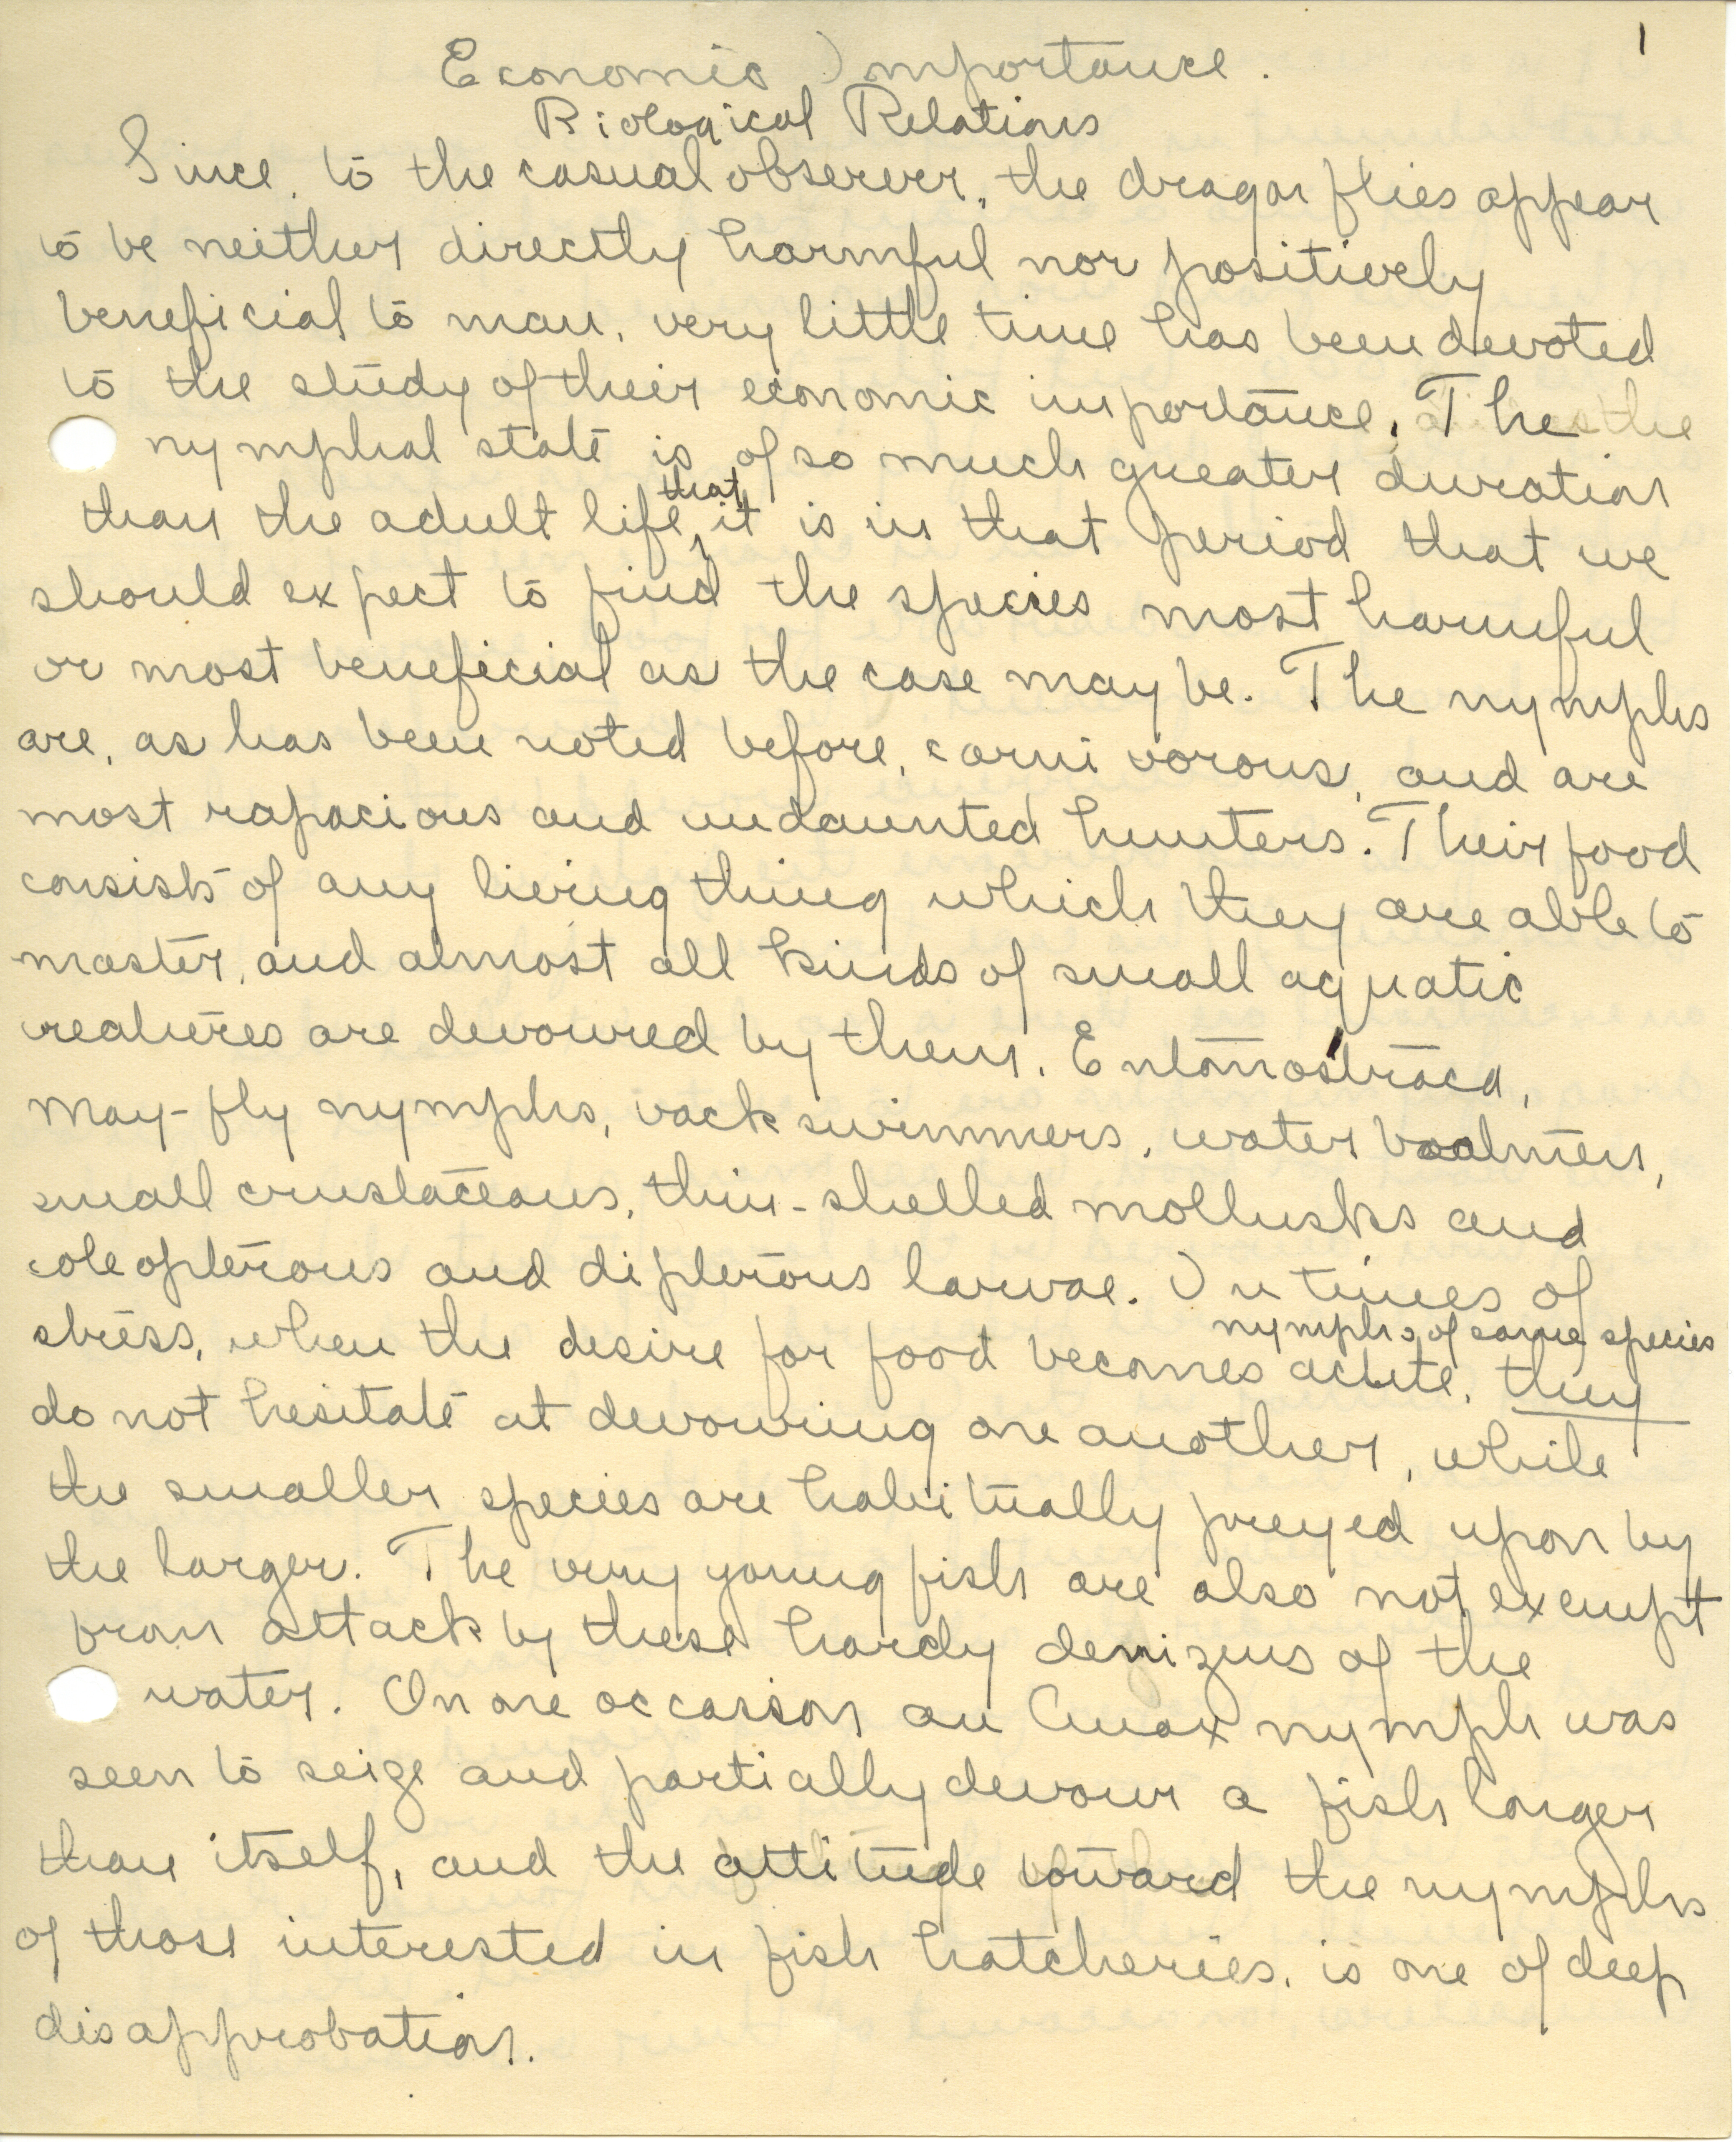 1
Economic Importance.
Biological Relations
Since, to the casual observer, the dragon flies appear
to be neither directly harmful nor positively
beneficial to man, very little time has been devoted
to the study of their economic importance. The the
nymphal state is of so much greater duration
that
than the adult life, it is in that period that we
should expect to find the species most harmful
or most beneficial as the case may be. The nymphs
are, as has been noted before, carnivorous, and are
most rapacious and undaunted hunters. Their food
consists of any living thing which they are able to
master, and almost all kinds of small aquatic
creatures are devoured by them. Entomostraca,
May-fly nymphs, back swimmers, water boatmen,
small crustaceans, thin-shelled mollusks and
coleopterous and dipterous larvae. In times of
nymphs of same species
stress, when the desire for food becomes acute, they
do not hesitate at devouring one another, while
the smaller species are habitually preyed upon by
the larger. The very young fish are also not exempt
from attack by these hardy denizens of the
water. On one occasion an Anax nymph was
seen to seize and partially devour a fish longer
than itself, and the attitude toward the nymphs
of those interested in fish hatcheries, is one of deep
disapprobation.